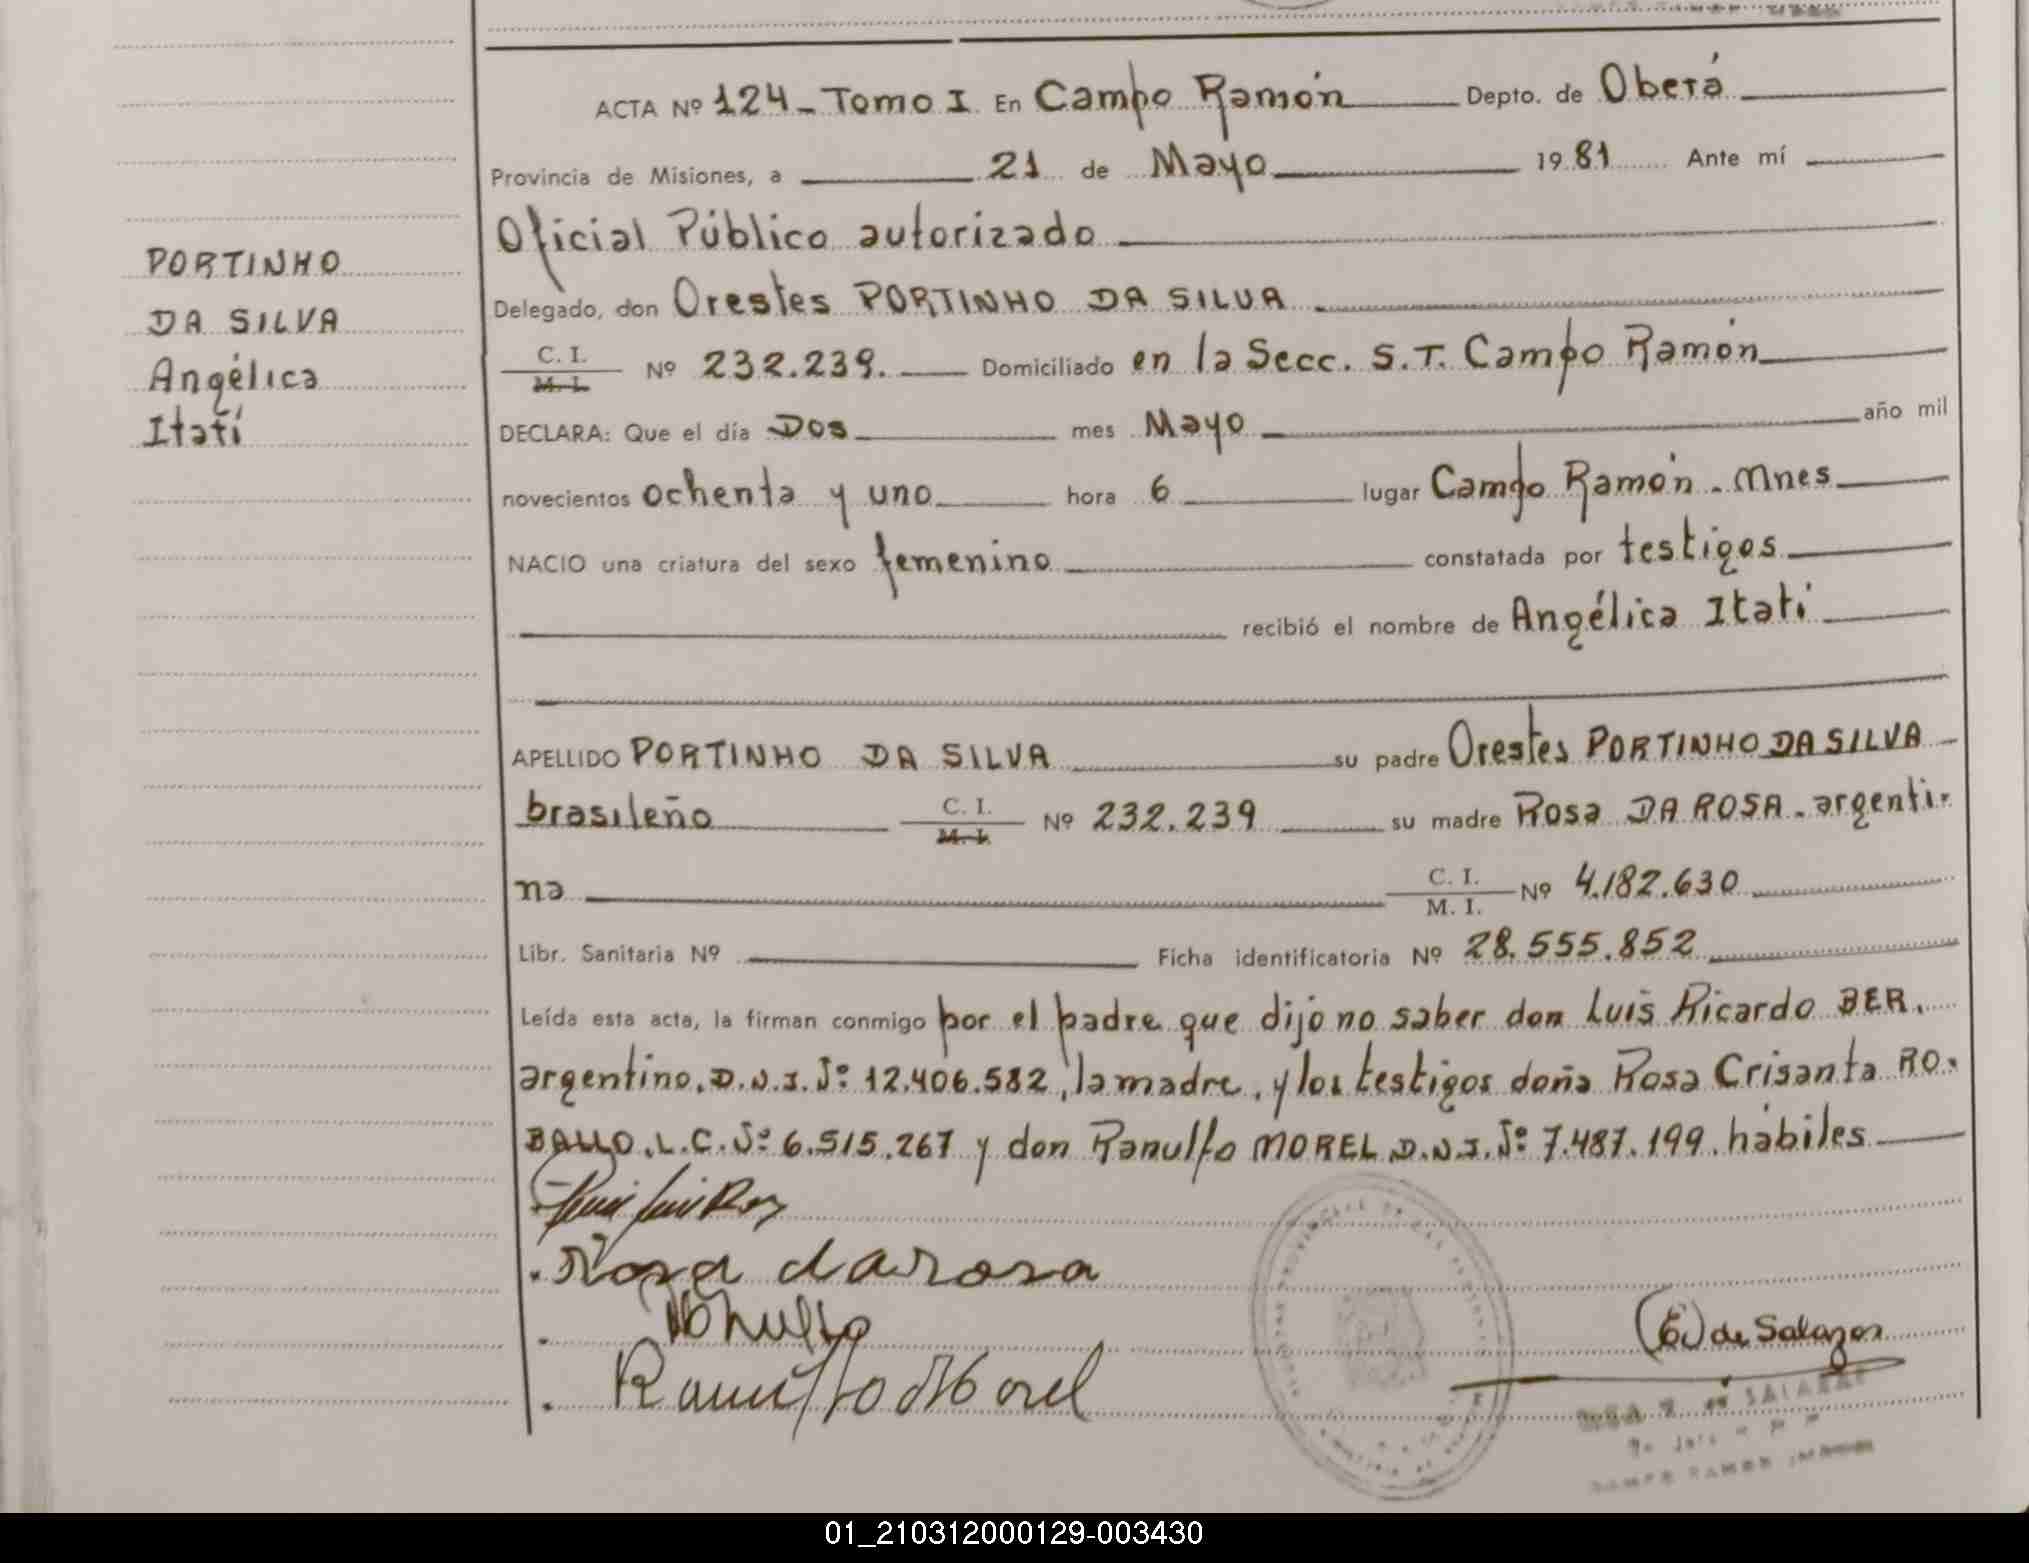 PORTINHO
DA SILVA
Angélica
Itatí
ACTA Nº 124_ Tomo I En Campo Ramón Depto. de Oberá
Provincia de Misiones, a 21 de Mayo 1981 Ante mí
Oficial Público autorizado
Delegado, don Orestes PORTINHO DA SILVA
C. I.
M. I. Nº 232.239. Domiciliado en la Secc. S.T. Campo Ramón
DECLARA: Que el día Dos mes Mayo año mil
novecientos ochenta y uno hora 6 lugar Campo Ramón - Mnes
NACIO una criatura del sexo femenino constatada por testigos
recibió el nombre de Angélica Itatí
APELLIDO PORTINHO DA SILVA su padre Orestes PORTINHO DA SILVA
brasileño C. I.
M. I. Nº 232.239 su madre Rosa DA ROSA - argenti-
na C. I.
M. I. Nº 4.182.630
Libr. Sanitaria Nº Ficha identificatoria Nº 28.555.852
Leída esta acta, la firman conmigo por el padre que dijo no saber don Luis Ricardo BER,
argentino. D.N.I. Nº: 12.406.582, la madre, y los testigos doña Rosa Crisanta RO-
BALLO. L.C. Nº: 6.515.267 y don Ranulfo MOREL D.N.I. Nº: 7.487.199. hábiles
Rosa da rosa
Ranulfo Morel
(E) de Salazar
DE SALAZAR
CAMPO RAMON
01_210312000129-003430